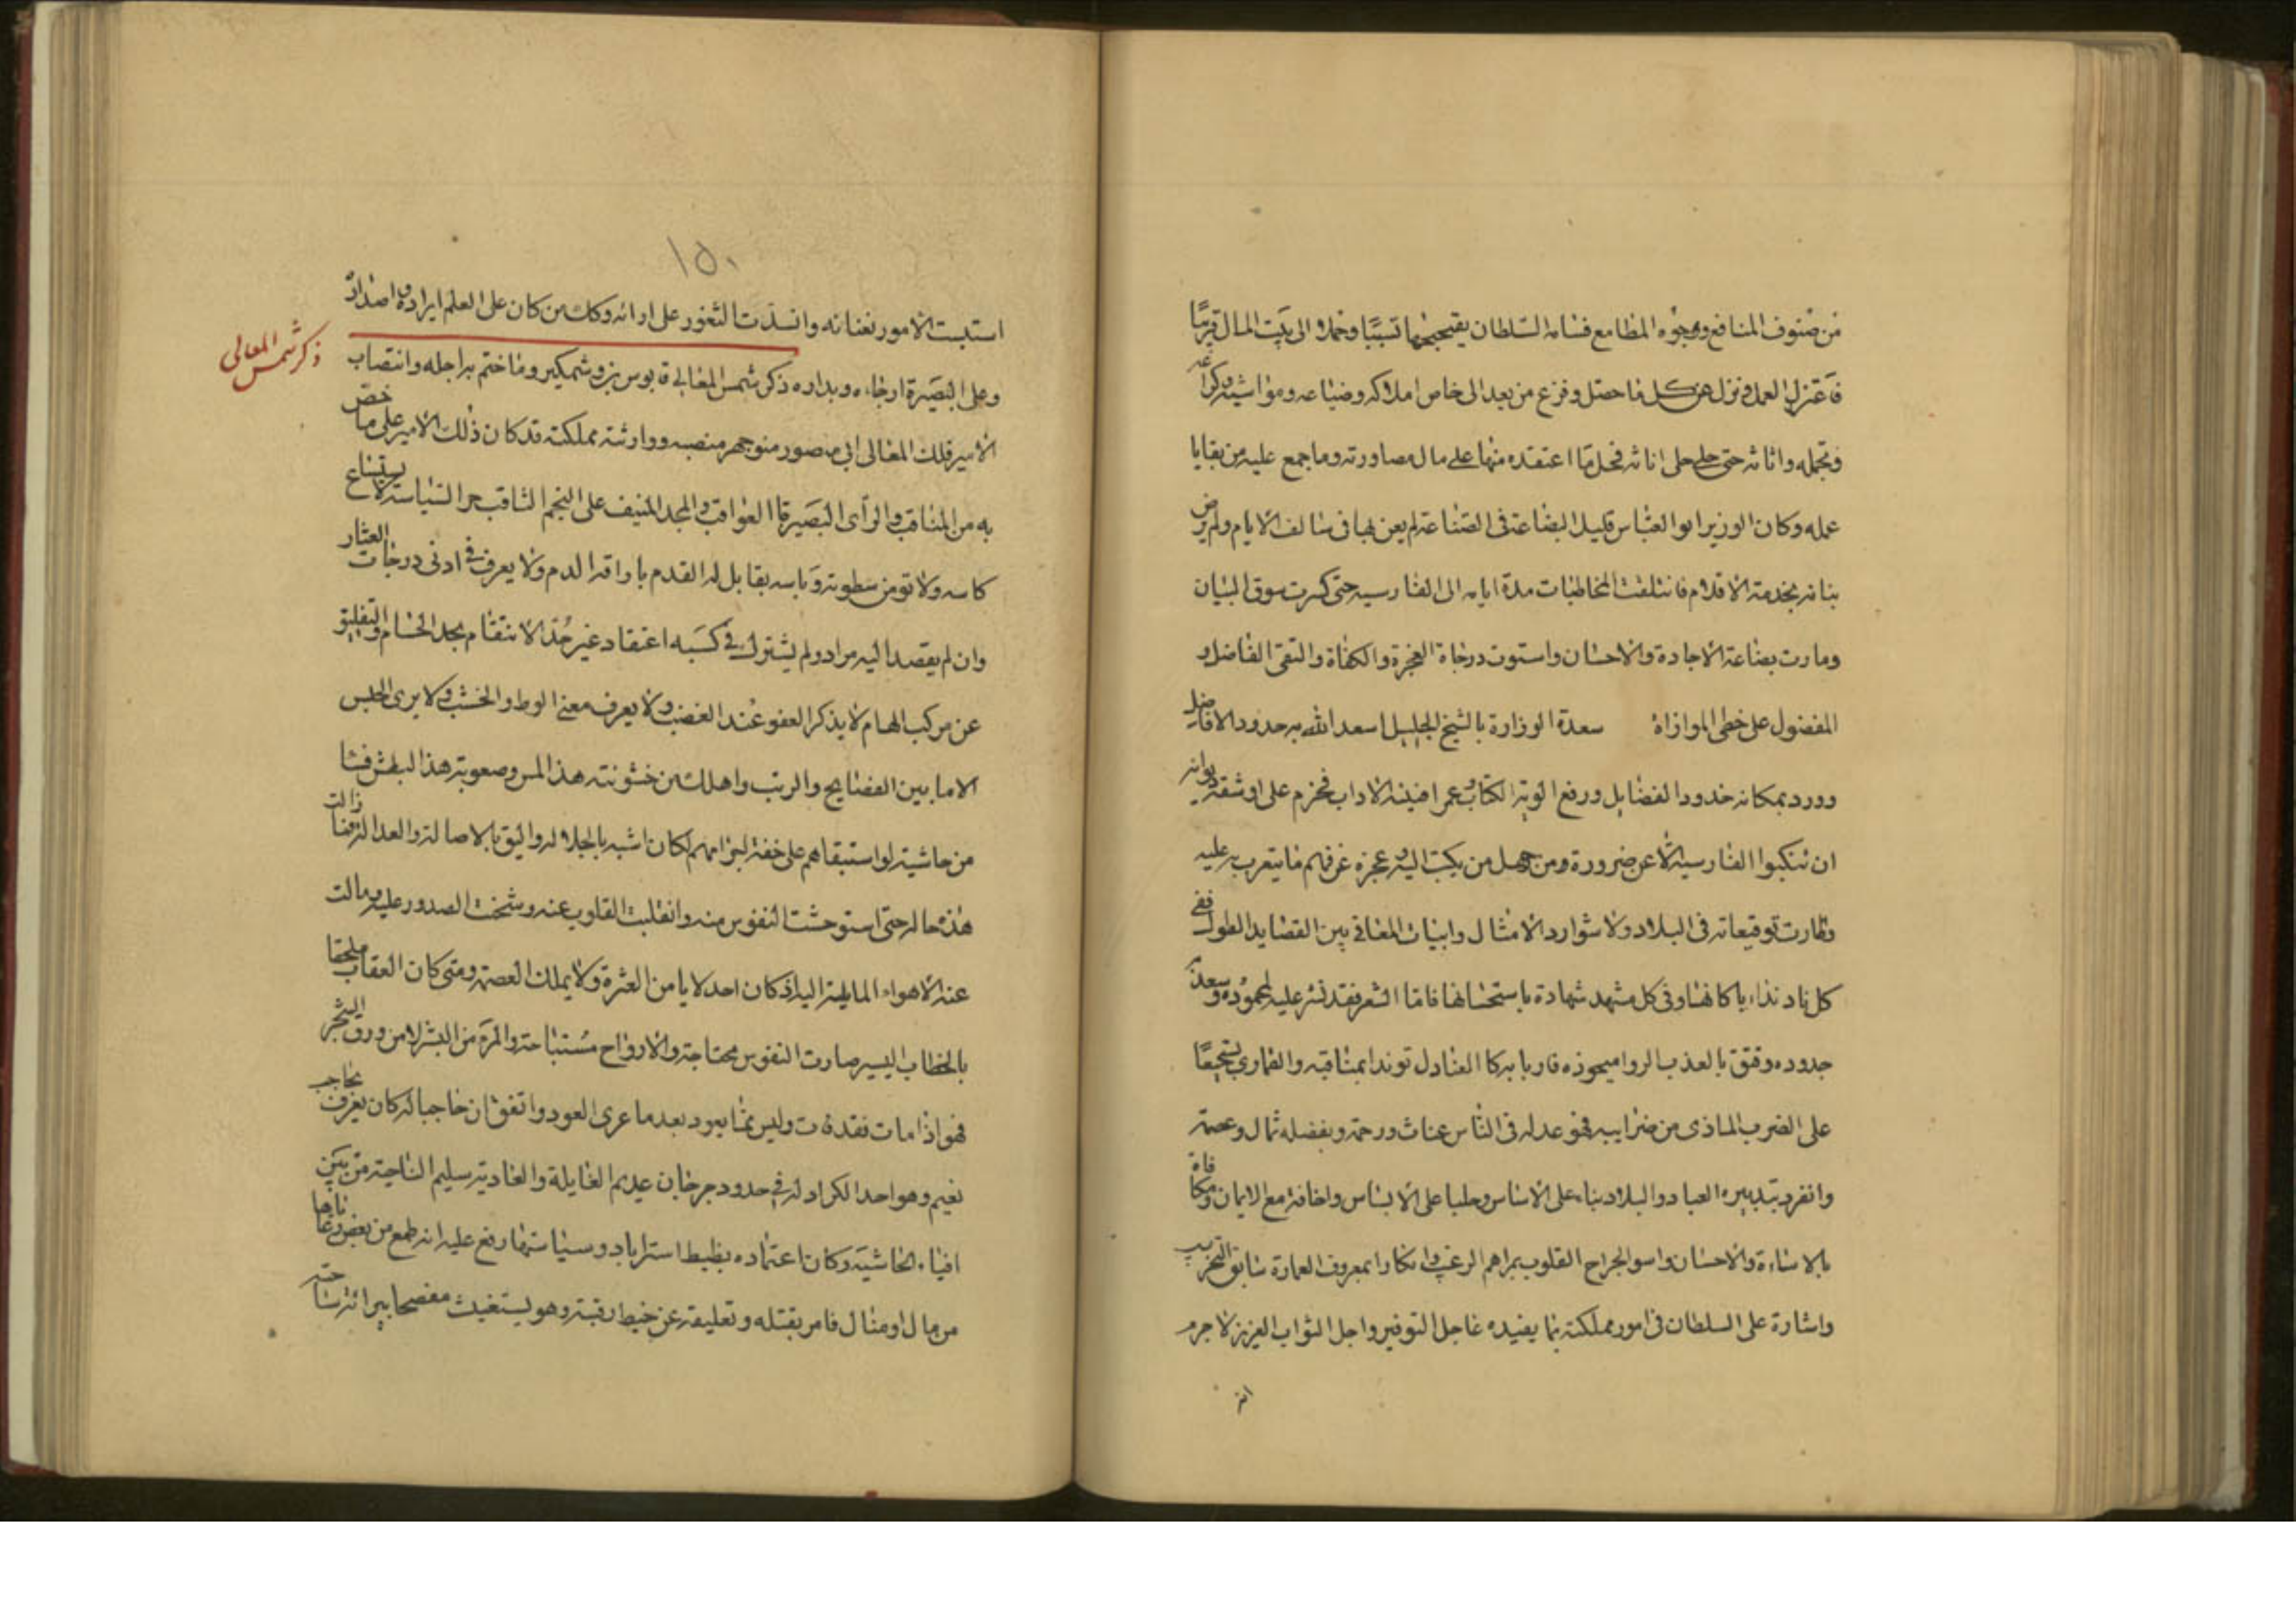 من صنوف المنافع ووجوه المطامع فسامه السلطان تسببا وحملا الى بيت المال قربتا
فاعتزل العمل ونزل عن كل ما حصل وفزع من بعد الى خاص املاكه وضياعه ومواشيه وكراعه
وتجمله واثاثه حتى حلي اناثه فحل ما اعتقده منها على مال مصاورته وما جمع عليه من بقايا
عمله وكان الوزير ابو العباس قليل البضاعة فى الصناعة لم يعن بها فى سالف الايام ولم يرض
بنانه بخدمة الاقلام فانتلقت المخاطبات مدة ايامه الى الفارسيه حتى كسرت سوق البيان
ومارت بضاعة الاجادة والاحسان واستوت درجاة العجزة والكفاة والتقى الفاضل و
المفضول على خطى الموازاة سعدة الوزارة بالشيخ الجليل اسعد الله به حدود الافاضل
وورد بمكانه خدود الفضايل ورفع الوية الكتاب وعمر افنية الاداب فجزم على اوشقة ديوانه
ان تنكبوا الفارسية الا عن ضرورة ومن جهل من يكتب اليه وعجزه عن فهم ما يتعرب به عليه
وطارت توقيعاته فى البلاد ولا شوارد الامثال وابيات المعانى بين القصايد الطول ففى
كل ناد نداء با كانها وفى كل مشهد شهادة باستحسانها فاما الشعر فقد نشر عليه لمجموده وسعد
جدوده وفتق بالعذب الروا ميحوذه فاربا بركا العنادل توندا بمناقبه والقمارى تسجيعا
على الضرب الماذى من ضرايبه فهو عدله فى الناس عناث ورحمة وبفضله ثمال وعصمة
وانفرد بتدبيره العباد والبلاد بناء على الاساس وحلبا على الابساس واخافة مع الايمان ومكافاة
بالاساءة والاحسان واسو الجراح القلوب بمراهم الرغب وانكارا بمعروف العمارة سابق التخريب
واشارة على السلطان فى امور مملكته بما يفيده عاجل التوفير واجل الثواب العزيز لا جرم
١٥٠
استبت الامور بعنانه وانسدت الثغور على ارائه وكك من كان على العلم ايراده واصداره
وعلى البصيرة ارجاءه وبداره ذكر شمس المعالى قابوس بن وشمكير وما ختم به اجله وانتصاب
ذكر شمس المعالى
الامير فلك المعالى ابى منصور منوجهر منصبه ووارثته مملكته قد كان ذلك الامير على ما خص
به من المناقب والرأى البصير قا العواقب والمجد المنيف على النجم الثاقب مر السياسة لا يستساغ
كاسه ولا تومن سطوته وباسه يقابل له القدم باراقة الدم ولا يعرف فى ادنى درجات العثار
وان لم يقصد اليه مراد ولم يشترك فى كسبه اعتقاد غير حد الانتقام بحد الحسام والتفليق
عن مركب الهام لا يذكر العفو عند الغضب ولا يعرف معنى الوط والخشب ولا يرى الحبس
الا ما بين الصفايح والرتب واهلك من خشونته هذا المس وصعوبة هذا البطش فشا
من حاشيته لو استبقاهم على خفة اجرامهم لكان اشبه بالجلالة واليق بالاصالة والعدالة فما زالت
هذه حاله حتى استوحشت النفوس منه وانقلبت القلوب عنه وشحنت الصدور عليه ومالت
عنه الاهواء المايلة اليه اذ كان احد لا يامن العثرة ولا يملك العصمة ومتى كان العقاب ملحقا
بالخطاب اليسير صارت النفوس محتاجة والارواح مستباحة والمرء من البشر لا من ورق الشجر
فهو اذا مات فقد فات وليس مما يعود بعد ما عرى العود واتفق ان حاجبا له كان يعرف بحاجب
نعيم وهو احد الكرادلة فى حدود جرجان عديم الغايلة والعادية سليم الناحية من بين
افياء الحاشية وكان اعتماده بظبط استراباد وسياستها رفع عليه انه طمع من بعض رعاياها
من مال او منال فامر بقتله وتعليقه عن خيط رقبته وهو يستغيث مفصحا ببرائة ساحته